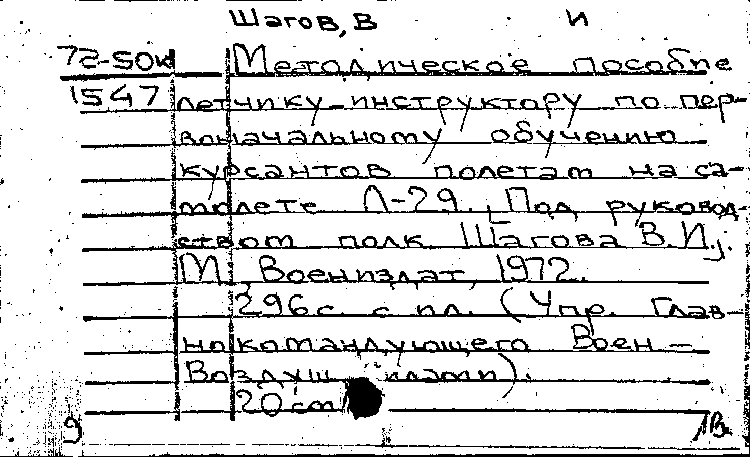 Шагов, В И
72-50к Методическое пособие
1547 летчику-инструктору по пер-
воначальному обучению
курсантов полетам на са-
молете Л-29. [Под руковод-
ством полк. Шагова В.И.].
М., Воениздат, 1972.
296 с. с ил. (Упр. Глав-
нокомандующего Воен-
Воздуш. силами).
20 cm
9